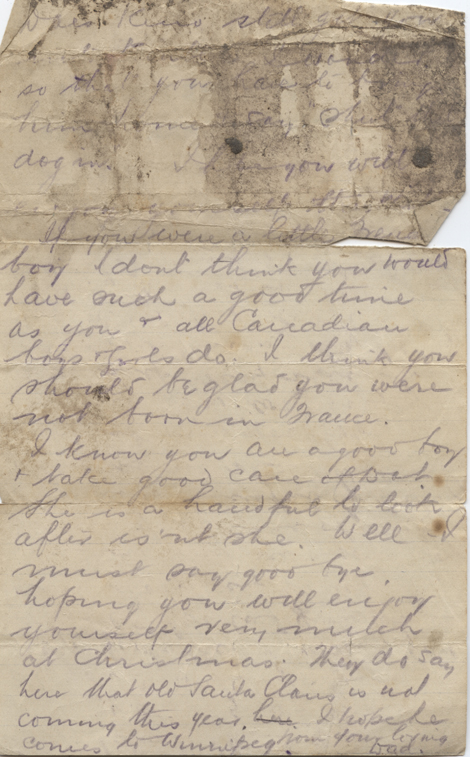 Does
so that you have to
him
dog
If you were a little French
boy I dont think you would
have such a good time
as you & all Canadian
boys & girls do. I think you
should be glad you were
not born in France.
I know you are a good boy
& take good care of
She is a handful to look
after is'nt she. Well I
must say good bye.
hoping you will enjoy
yourself very much
at Christmas. They do say
here that old Santa Claus is not
coming this year. I hope he
comes to Winnipeg. from your loving
Dad.